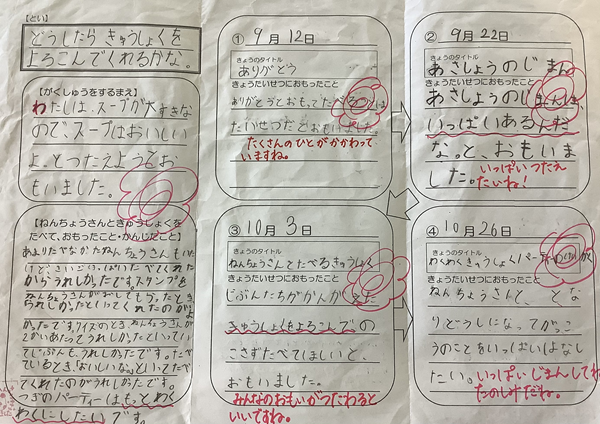 【とい】
どうしたら きゅうしょくを
よろこんでくれるかな。
【がくしゅうをするまえ】
わたしは、スープが大すきな
ので、スープはおいしい
よ、とつたえようとお
もいました。
【ねんちょうさんときゅうしょくを
たべて、おもったこと・かんじたこと】
たべてくれた
からうれしかったです。スタンプを
うれしかったといってくれたのがよ
かったです。クイズのとき、ねんちょうさんが
2かいあたってうれしかったといってい
てじぶんも、うれしかったです。たべ
ているとき、おいしいな。といってたべ
てくれたのがうれしかったです。
つぎのパーティーはもっとわく
わくにしたいです。
① 9月12日
きょうのタイトル
ありがとう
きょうたいせつにおもったこと
ありがとうとおもってたべることは
たいせつだとおもいました。
たくさんのひとがかかわって
いますね。
② 9月22日
きょうのタイトル
あさしょうのじまん
きょうたいせつにおもったこと
あさしょうのじまんは
いっぱいあるんだ
なっと、おもいま
した。いっぱいつたえ
たいね!
③ 10月3日
きょうのタイトル
ねんちょうさんとたべるきゅうしょく
きょうたいせつにおもったこと
じぶんたちがかんがえた
きゅうしょくをよろこんでの
こさずたべてほしいと、
おもいました。
みんなのおもいがつたわると
いいですね。
④ 10月26日
きょうのタイトル
わくわくきゅうしょくパーティー
きょうたいせつにおもったこと
ねんちょうさんと、とな
りどうしになってがっこ
うのことをいっぱいはなし
たい。いっぱいじまんしてね
たのしみだね。